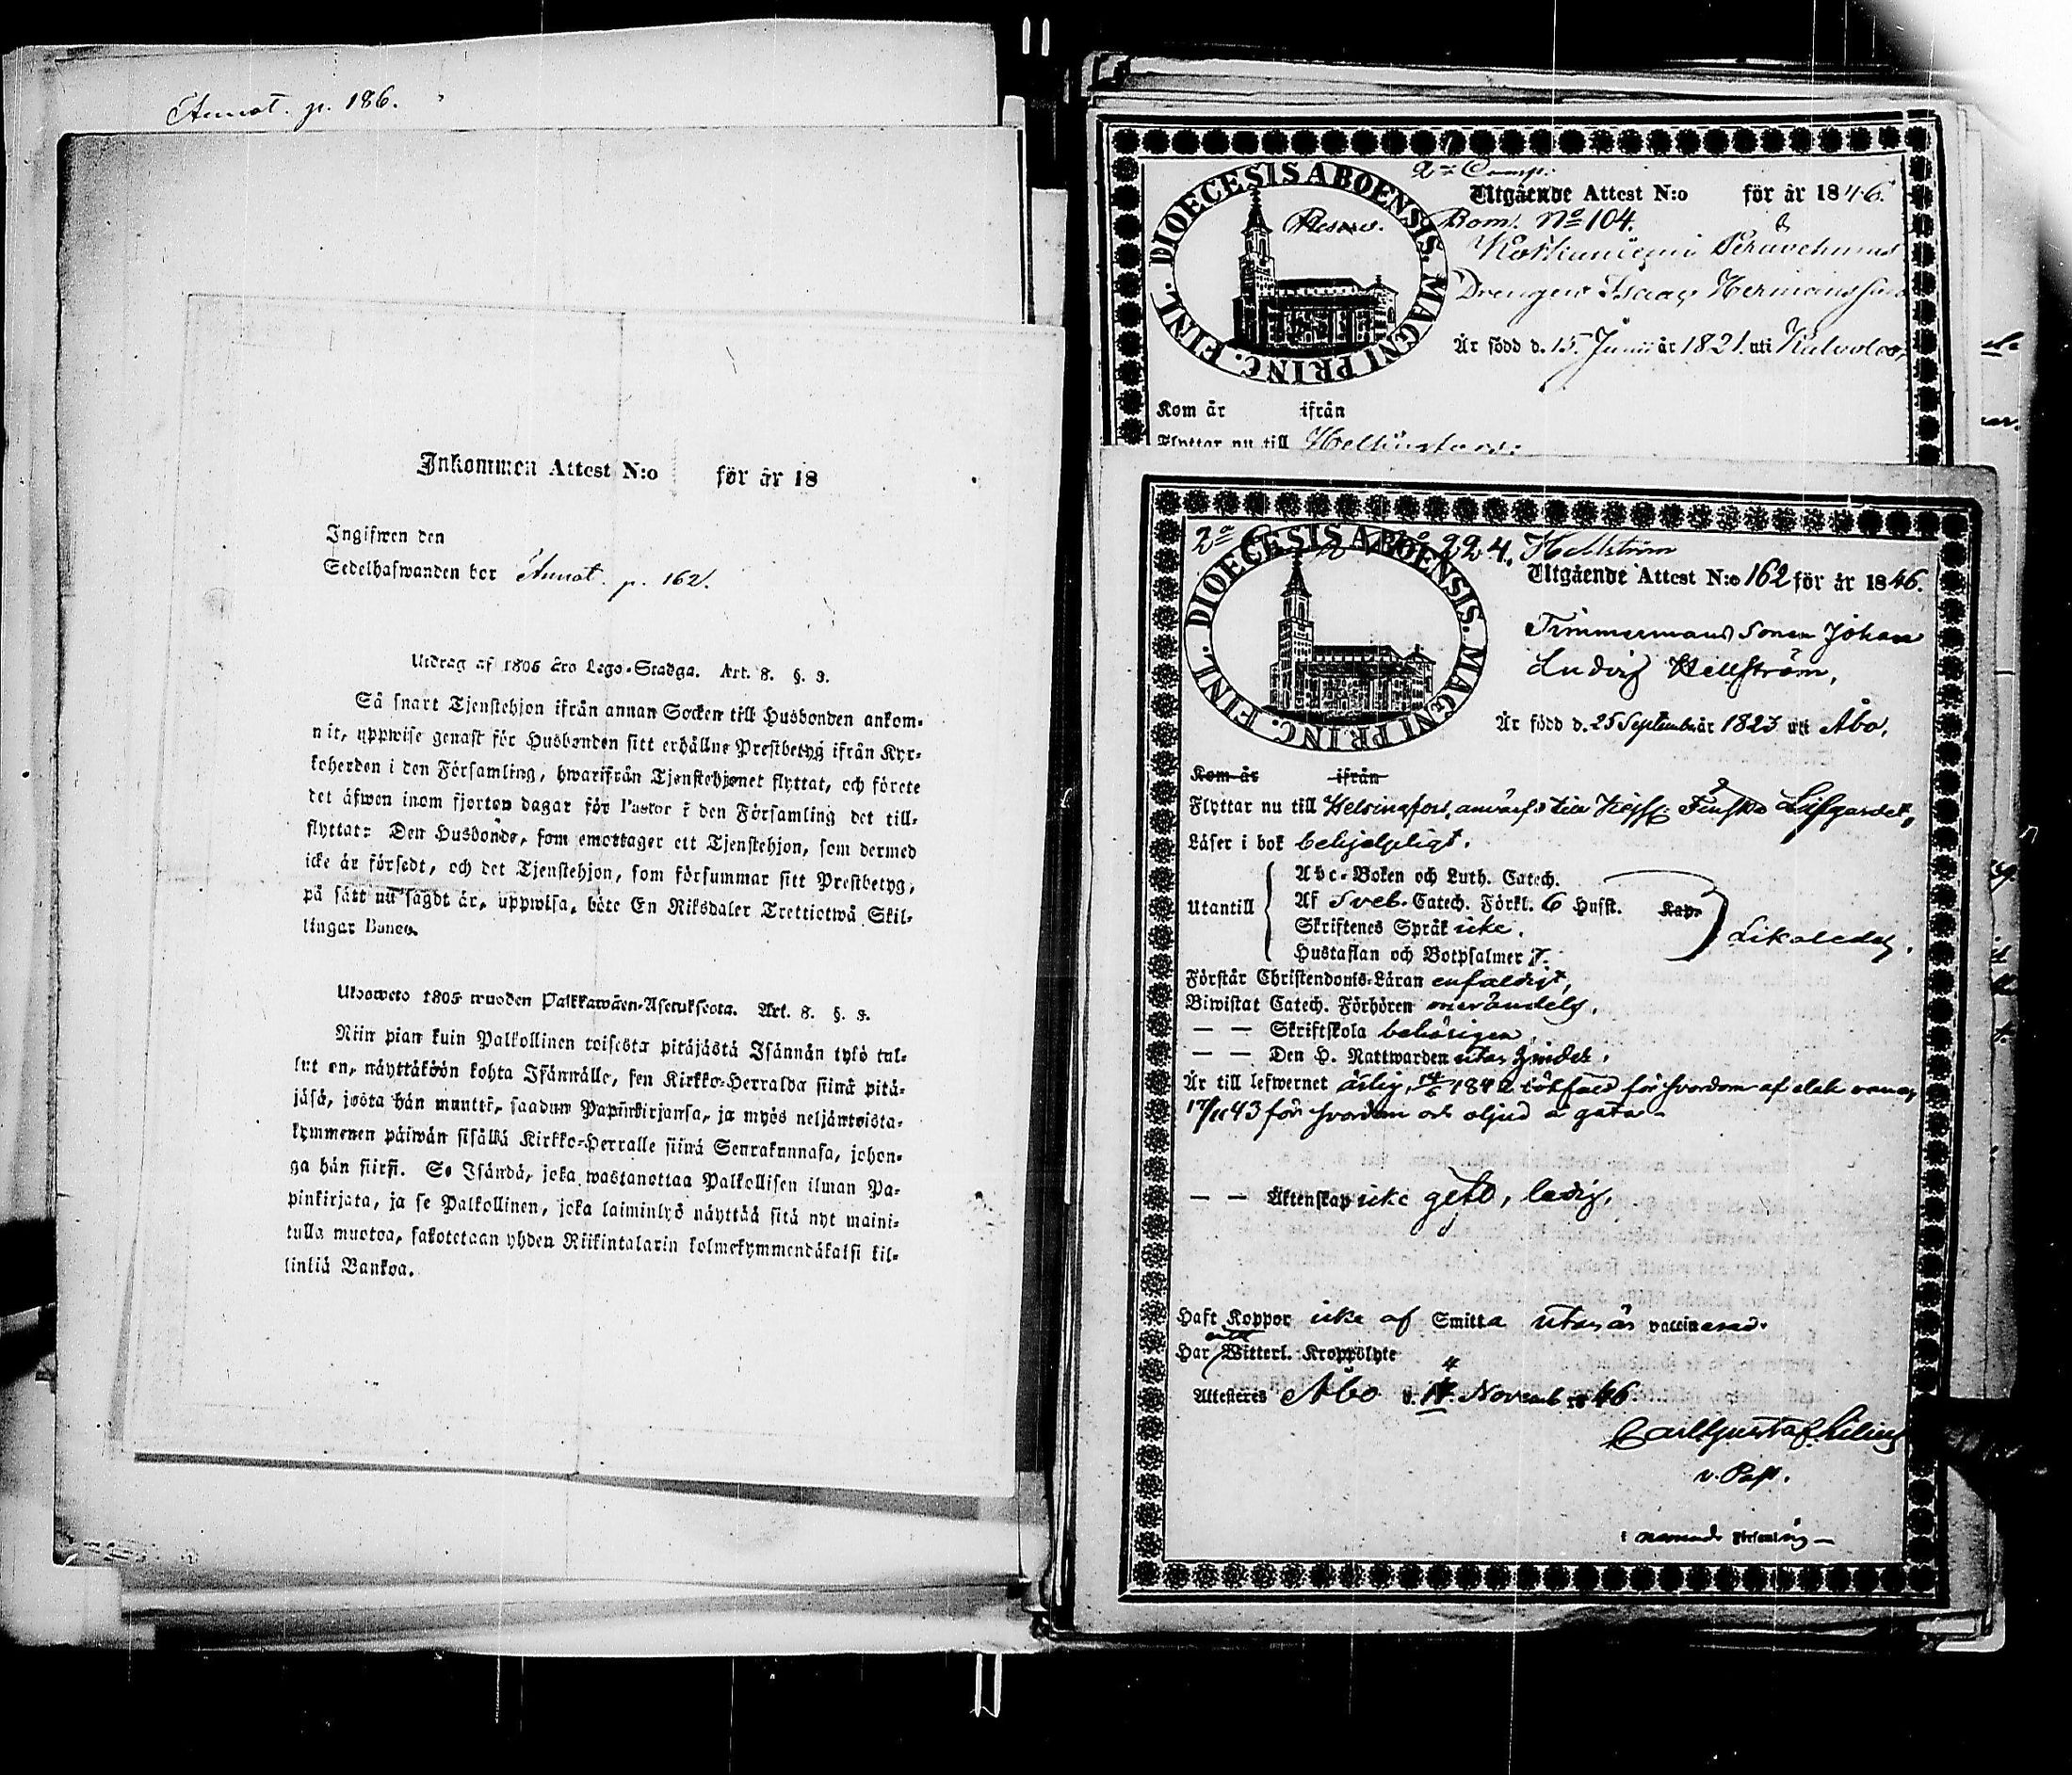 Annot. p. 186.
Inkommen Attest N:o för år 18
Ingifwen den
Sedelhafwanden bor Annot. p. 162.
Utdrag af 1805 års Lego-Stadga. Art. 8. §. 3.
Så snart Tjenstehjon ifrån annan Socken till Husbonden ankom-
mit, uppwise genast för Husbonden sitt erhållne Prestbetyg ifrån Kyr-
koherden i den Församling, hwarifrån Tjenstehjonet flyttat, och förete
det äfwen inom fjorton dagar för Pastor i den Församling det till-
flyttat: Den Husbonde, som emottager ett Tjenstehjon, som dermed
icke är försedt, och det Tjenstehjon, som försummar sitt Prestbetyg,
på sätt nu sagdt är, uppwisa, böte En Riksdaler Trettiotwå Skil-
lingar Banco.
Ulosweto 1805 wuoden Palkkawäen-Asetuksesta. Art. 8. §. 3.
Niin pian kuin Palkollinen toisesta pitäjästä Isännän tykö tul-
lut on, näyttäköön kohta Isännälle, sen Kirkko-Herralda siinä pitä-
jäsä, josta hän muutti, saadun Papinkirjansa, ja myös neljäntoista-
kymmenen päiwän sisällä Kirkko-Herralle siinä Seurakunnasa, johon-
ga hän siirsi. Se Isändä, joka wastanottaa Palkollisen ilman Pa-
pinkirjata, ja se Palkollinen, joka laiminlyö näyttää sitä nyt maini-
tulla muotoa, sakotetaan yhden Riikintalarin kolmekymmendäkaksi kil-
linkiä Bankoa.
2:a Comp.
DIOECESIS ABOENSIS. MAGNI PRINC. FINL.
Utgående Attest N:o för år 1846.
Rom. No 104.
Drengen Isaac Hermansson
Är född d. 15 Junii år 1821. uti Kalvola,
Kom år ifrån
Flyttar nu till Helsingfors.
2:a 224. Hellström
DIOECESIS ABOENSIS. MAGNI PRINC. FINL.
Utgående Attest N:o 162 för år 1846.
Timmermans Sonen Johan
Ludvig Hellström,
Är född d. 25 September år 1823 uti Åbo.
Kom år ifrån
Flyttar nu till Helsingfors, till Finska Lifgardet,
Läser i bok behjelpligt.
Utantill
Abc-Boken och Luth. Catech.
Af Sveb. Catech. Förkl. 6 Hufst. Kap.
Skriftenes Språk icke.
Hustaflan och Botpsalmer 7.
Likaledes.
Förstår Christendoms-Läran enfaldigt,
Biwistat Catech. Förhören
— — Skriftskola behörigen,
— — Den H. Nattwarden utan hinder.
Är till lefwernet ärlig, 1842 för svordom af elak vana,
17/11 43 för svordom och oljud å gata.
— — Äktenskap icke gift, ledig.
Haft Koppor icke af Smitta utan är vaccinerad.
Har Witterl. Kroppslyte
Attesteres Åbo d. 4 Novemb. 1846.
Carl Gustaf Lilius
v. Past.
i nämnde Församling